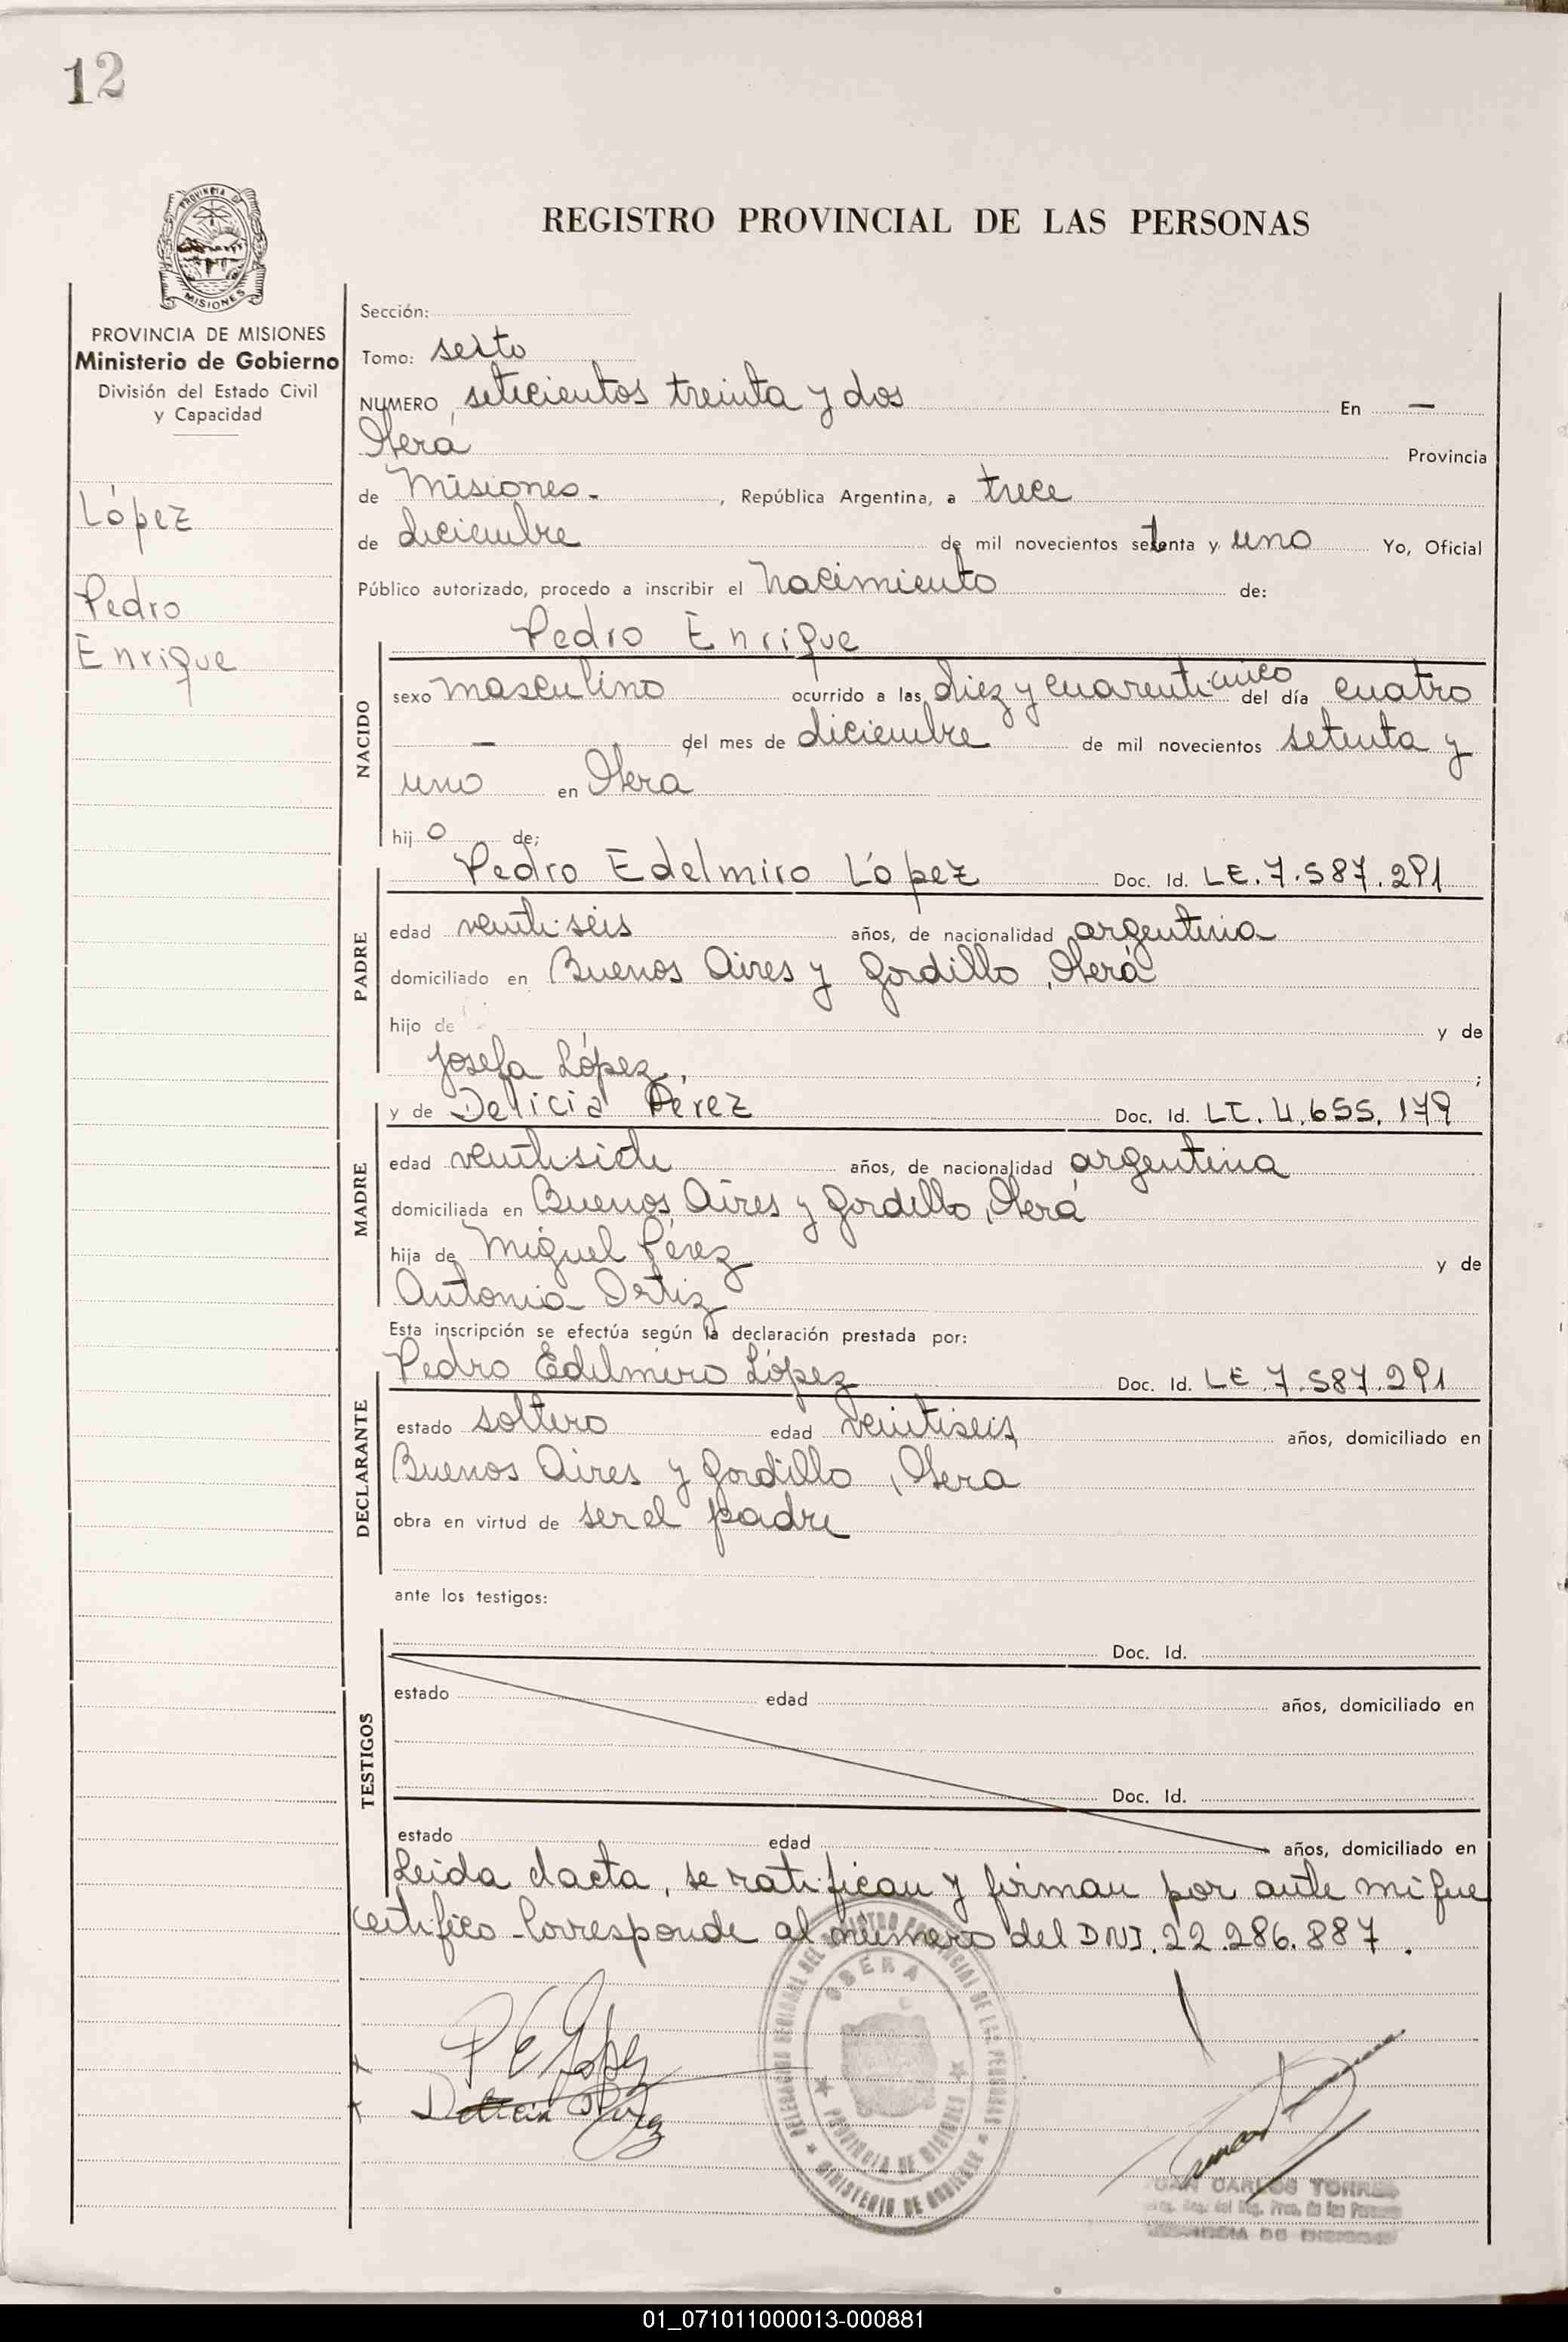 12
PROVINCIA DE
MISIONES
REGISTRO PROVINCIAL DE LAS PERSONAS
PROVINCIA DE MISIONES
Ministerio de Gobierno
División del Estado Civil
y Capacidad
López
Pedro
Enrique
Sección:
Tomo: sexto
NUMERO setecientos treinta y dos En —
Oberá Provincia
de Misiones.- , República Argentina, a trece
de diciembre de mil novecientos setenta y uno Yo, Oficial
Público autorizado, procedo a inscribir el nacimiento de:
Pedro Enrique
NACIDO
sexo masculino ocurrido a las diez y cuarenticinco del día cuatro
— del mes de diciembre de mil novecientos setenta y
uno en Oberá
hijo de;
PADRE
Pedro Edelmiro López Doc. Id. LE. 7.587.291
edad veintiseis años, de nacionalidad argentina
domiciliado en Buenos Aires y Gordillo, Oberá
hijo de y de
Josefa López, ;
MADRE
y de Delicia Pérez Doc. Id. LC. 4.655.179
edad veintisiete años, de nacionalidad argentina
domiciliada en Buenos Aires y Gordillo, Oberá
hija de Miguel Pérez y de
Antonia Ortiz
Esta inscripción se efectúa según la declaración prestada por:
DECLARANTE
Pedro Edelmiro López Doc. Id. LE. 7.587.291
estado soltero edad veintiseis, años, domiciliado en
Buenos Aires y Gordillo, Oberá
obra en virtud de ser el padre
ante los testigos:
TESTIGOS
Doc. Id.
estado edad años, domiciliado en
Doc. Id.
estado edad años, domiciliado en
Leida el acta, se ratifican y firman por ante mi que
certifico. Corresponde al número del DNI. 22.286.887.
P E López
Delicia Pérez
DELEGACION REGIONAL DEL REGISTRO PROVINCIAL DE LAS PERSONAS
OBERA
PROVINCIA DE MISIONES
MINISTERIO DE GOBIERNO
JUAN CARLOS TORRES
del Reg. Prov. de las Personas
01_071011000013-000881